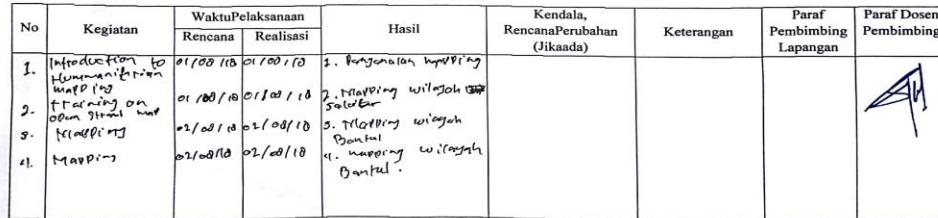 No
Kegiatan
WaktuPelaksanaan
Rencana
Realisasi
Hasil
Kendala,
RencanaPerubahan
(Jikaada)
Keterangan
Paraf
Pembimbing
Lapangan
Paraf Dosen
Pembimbing
1.
Introduction to
Hummanitirian
mapping
01/08/18
01/08/18
1. Pengenalan mapping
2.
training on
open street map
01/08/18
01/08/18
2. Mapping wilayah
3.
Mapping
02/08/18
02/08/18
3. Mapping wilayah
Bantul
4.
Mapping
02/08/18
02/08/18
4. mapping wilayah
Bantul.